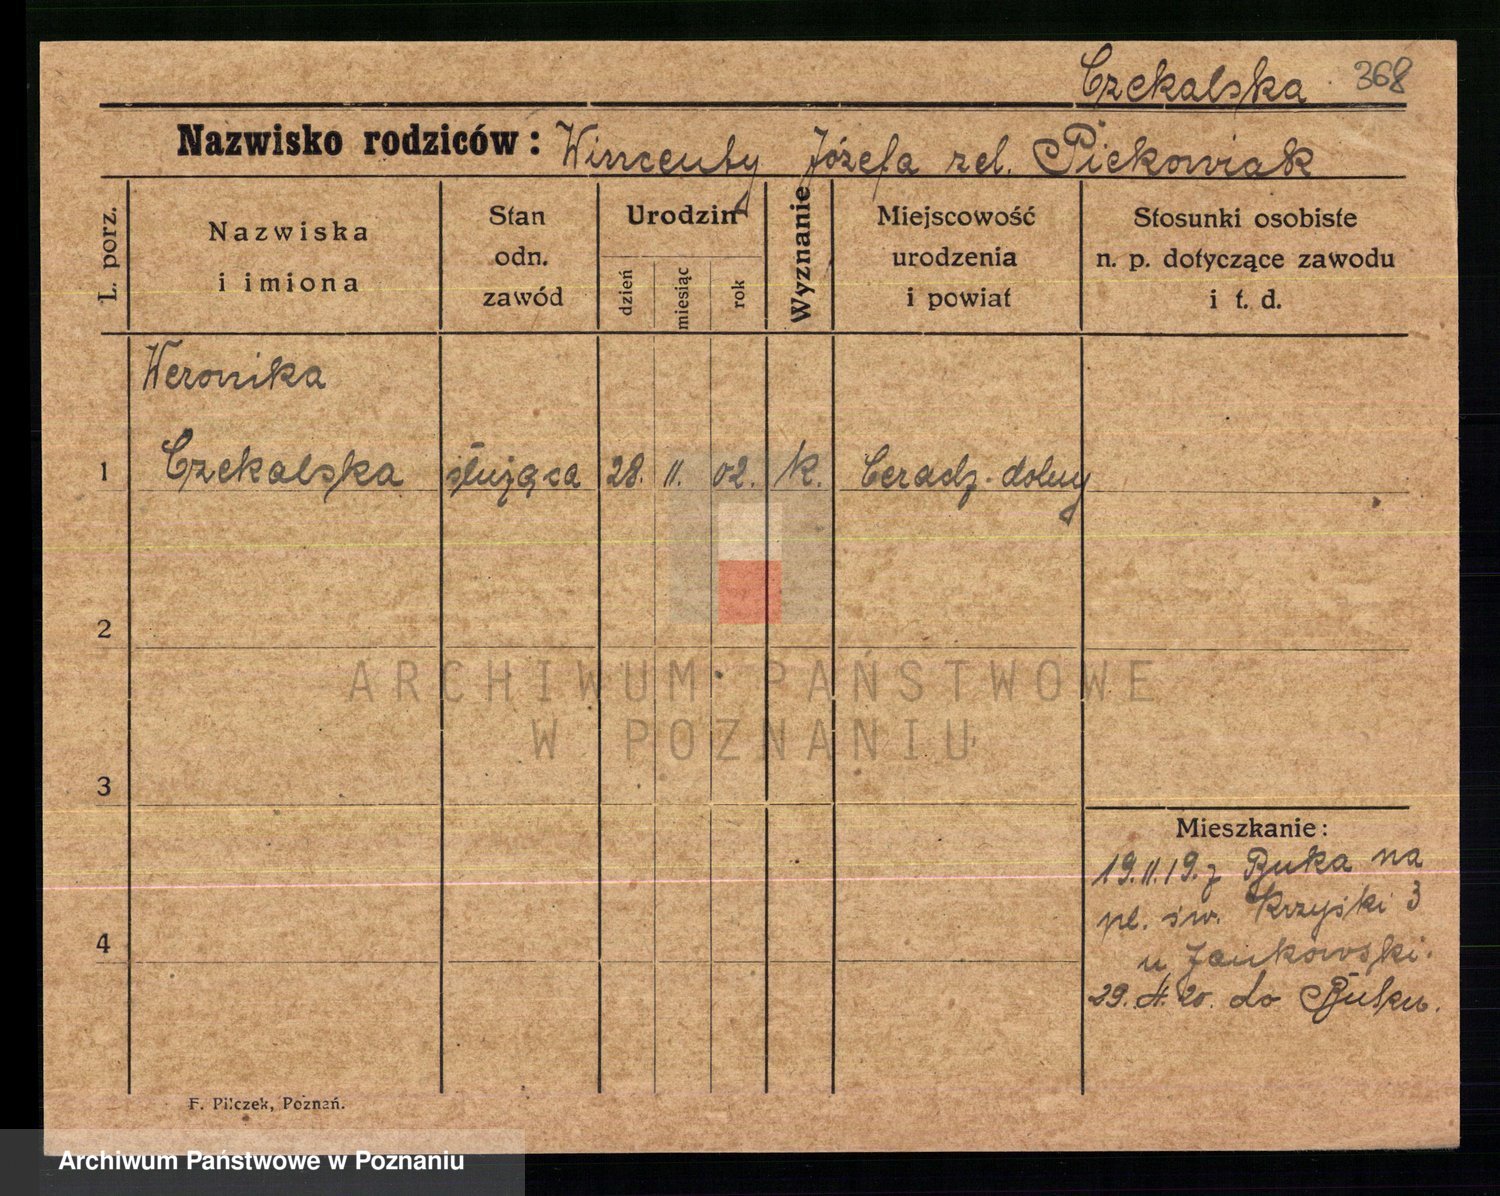 Czekalska 368
Nazwisko rodziców: Wincenty Józefa zel. Piekowiak
L. porz.
Nazwiska
i imiona
Stan
odn.
zawód
Urodzin
dzień
miesiąc
rok
Wyznanie
Miejscowość
urodzenia
i powiat
Stosunki osobiste
n. p. dotyczące zawodu
i t. d.
Weronika
1 Czekalska służąca 28. 11. 02. k. Ceradz. dolny
2
ARCHIWUM PAŃSTWOWE
W POZNANIU
3
Mieszkanie:
19.11.19. z Buka na
pl. św. Krzyski 3
4
u Jankowski.
29. 4. 20. do Buku.
F. Pilczek, Poznań.
Archiwum Państwowe w Poznaniu